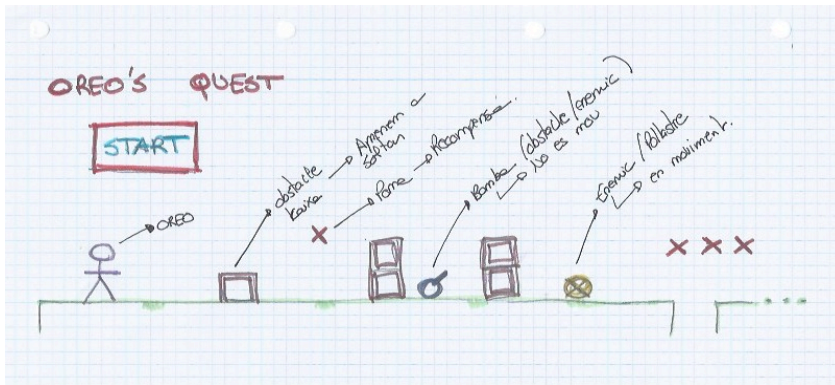 OREO'S QUEST
START
OREO
obstacle
kaixa
Aprenem a
saltar
Poma → Recompensa.
Bomba (obstacle/enemic)
No es mou
Enemic / Pollastre
en moviment.